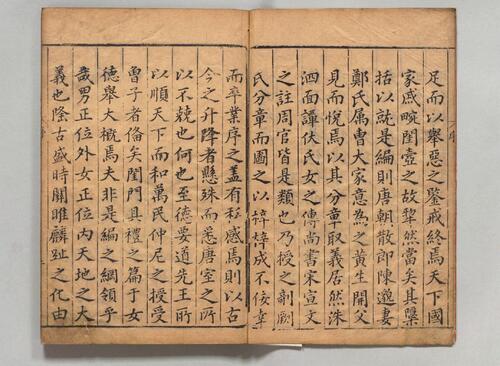 序
足而以舉惡之鑒戒終焉天下國
家戚畹閫壼之故犂然當矣其檃
括以就是編則唐朝散郎陳邈妻
鄭氏屬曹大家意為之黃生開父
見而悅焉以其分章取義居然洙
泗面譚伏氏女之傳尚書宋宣文
之註周官皆是類也乃授之剞劂
氏分章而圖之以梓梓成不佞韋
而卒業序之蓋有私感焉則以古
今之升降者懸殊而悉唐室之所
以不兢也何也至德要道先王所
以順天下而和萬民仲尼之授受
曾子者俻矣閨門具禮之篇于女
德舉大概焉夫非是編之綱領乎
哉男正位外女正位內天地之大
義也隆古盛時關雎麟趾之化由